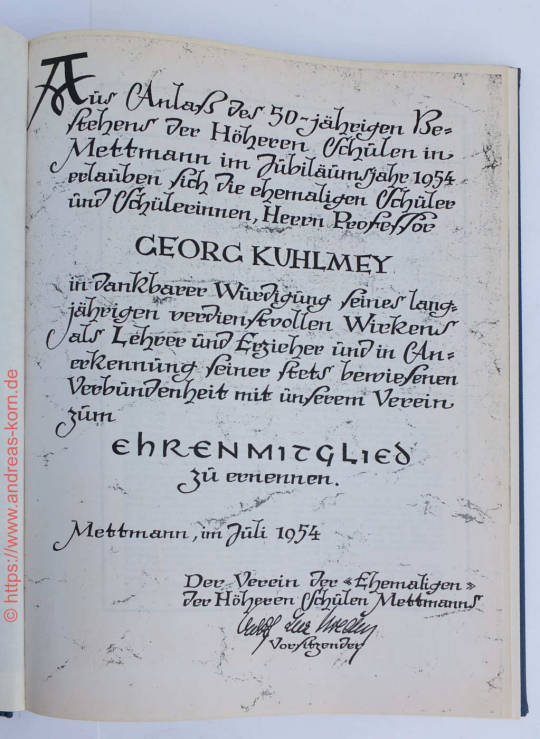 Aus Anlaß des 50-jährigen Be-
stehens der Höheren Schulen in
Mettmann im Jubiläumsjahr 1954
erlauben sich die ehemaligen Schüler
und Schülerinnen, Herrn Professor
GEORG KUHLMEY
in dankbarer Würdigung seines lang-
jährigen verdienstvollen Wirkens
als Lehrer und Erzieher und in An-
erkennung seiner stets bewiesenen
Verbundenheit mit unserem Verein
zum
EHRENMITGLIED
zu ernennen.
Mettmann, im Juli 1954
Der Verein der «Ehemaligen»
der Höheren Schulen Mettmanns
Vorsitzender
© https://www.andreas-korn.de